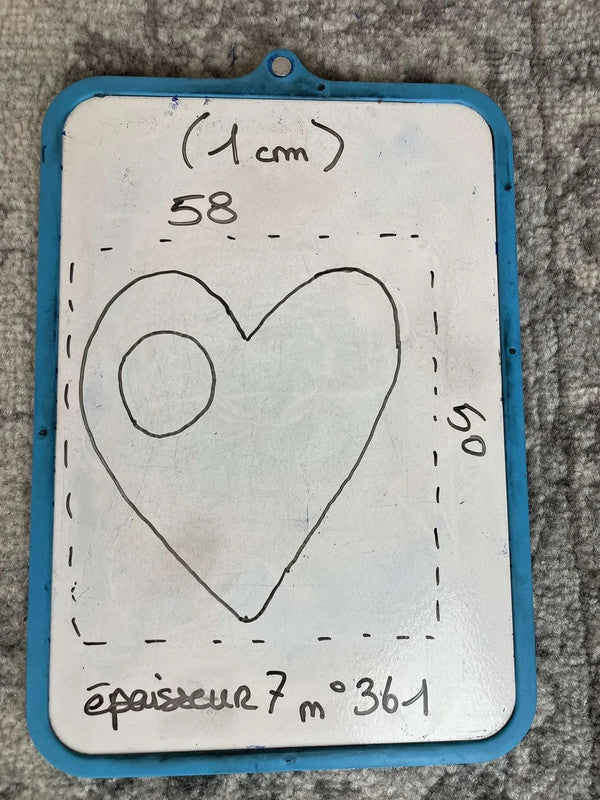 (1 cm)
58
50
épaisseur 7 n° 361